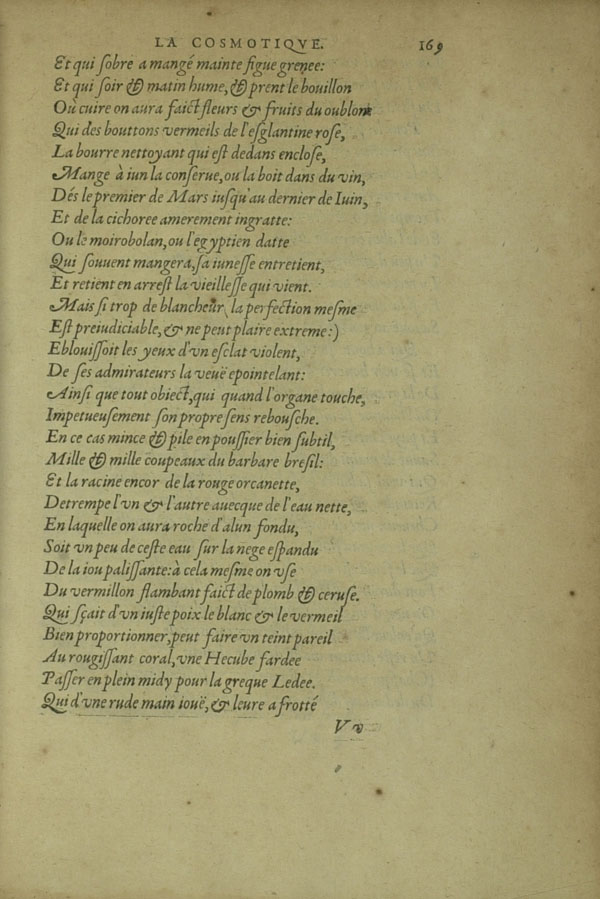 LA COSMOTIQVE. 169
Et qui ſobre a mangé mainte figue grenee:
Et qui ſoir & matin hume, & prent le bouillon
Où cuire on aura faict fleurs & fruits du oublon
Qui des bouttons vermeils de l'eſglantine roſe,
La bourre nettoyant qui eſt dedans encloſe,
Mange à iun la conſerue, ou la boit dans du vin,
Dés le premier de Mars iuſqu'au dernier de Iuin,
Et de la cichoree amerement ingratte:
Ou le moirobolan, ou l'egyptien datte
Qui ſouuent mangera, ſa iuneſſe entretient,
Et retient en arreſt la vieilleſſe qui vient.
Mais ſi trop de blancheur, la perfection meſme
Eſt preiudiciable, & ne peut plaire extreme:)
Eblouiſſoit les yeux d'vn eſclat violent,
De ſes admirateurs la veuë epointelant:
Ainſi que tout obiect, qui quand l'organe touche,
Impetueuſement ſon propre ſens rebouſche.
En ce cas mince & pile en pouſſier bien ſubtil,
Mille & mille coupeaux du barbare breſil:
Et la racine encor de la rouge orcanette,
Detrempe l'vn & l'autre auecque de l'eau nette,
En laquelle on aura roche d'alun fondu,
Soit vn peu de ceſte eau ſur la nege eſpandu
De la iou paliſſante: à cela meſme on vſe
Du vermillon flambant faict de plomb & ceruſe.
Qui ſçait d'vn iuſte poix le blanc & le vermeil
Bien proportionner, peut faire vn teint pareil
Au rougiſſant coral, vne Hecube fardee
Paſſer en plein midy pour la greque Ledee.
Qui d'vne rude main iouë, & leure a frotté
V v